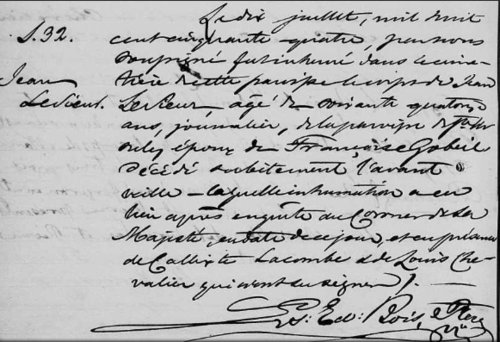 S. 32.
Jean
Le dix juillet, mil huit
cent cinquante-quatre, par nous
soussigné fut inhumé dans le cime-
tière de cette paroisse le corps de Jean
âgé de soixante quatorze
ans, journalier, de la paroisse de
époux de Françoise
décédé subitement l'avant
veille - laquelle inhumation a eu
lieu après enquête du Coroner de Sa
Majesté, en date de ce jour, et en présence
de Callixte Lacombe & de Louis Che-
valier qui n'ont su signer).
Ed: Bois, Ptre